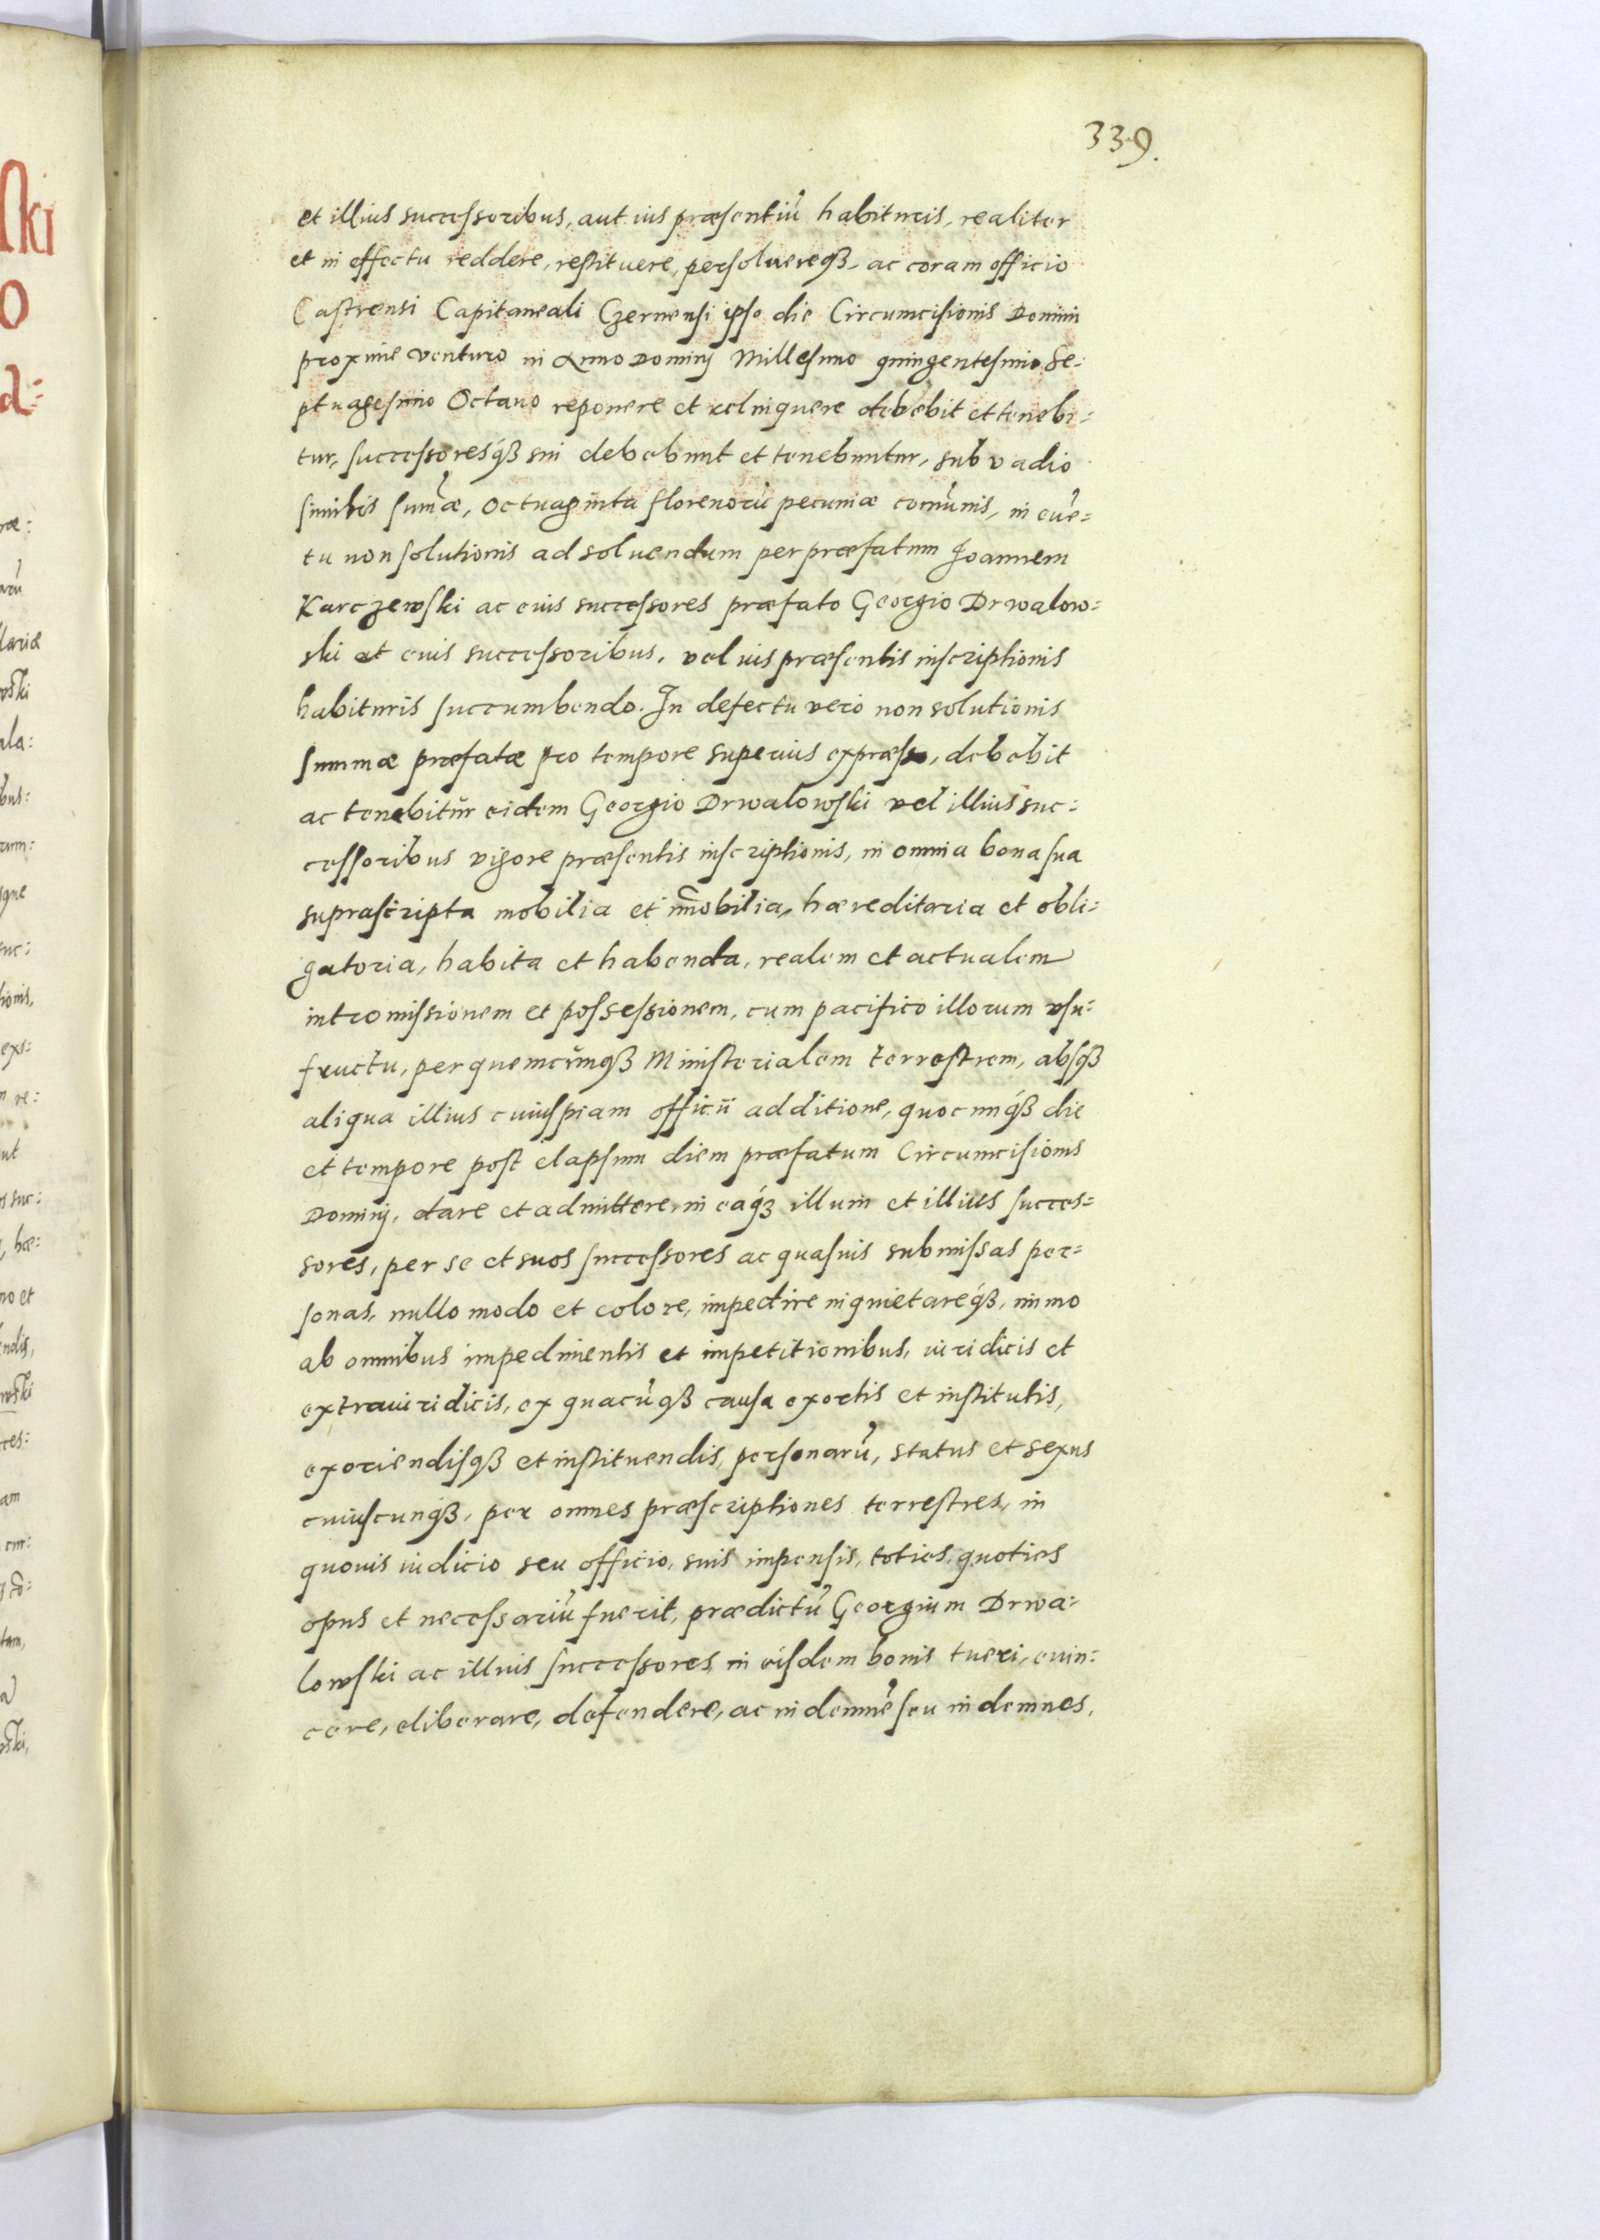 339.
et illius successoribus, aut ius præsentiū habituris, realiter
et in effectu reddere, restituere, persoluereqʒ, ac coram officio
Castrensi Capitaneali Czernensi ipso die Circumcisionis Domini
proxime venturo in Anno Dominj Millesimo quingentesimo Se=
ptuagesimo Octauo reponere et relinquere debebit et tenebi=
tur, successoresqʒ sui debebunt et tenebuntur, sub vadio
similis sum̄æ, octuaginta florenorū pecuniæ com̄unis, in euē=
tu non solutionis ad soluendum per præfatum Joannem
Karczewski ac eius successores præfato Georgio Drwalow=
ski et eius successoribus, vel ius præsentis inscriptionis
habituris succumbendo. In defectu vero non solutionis
summæ præfatæ pro tempore superius expræsso, debebit
ac tenebitur eidem Georgio Drwalowski vel illius suc=
cessoribus vigore præsentis inscriptionis, in omnia bona sua
suprascripta mobilia et im̄obilia, hæreditaria et obli=
gatoria, habita et habenda, realem et actualem
intromissionem et possessionem, cum pacifico illorum vsu=
fructu, per quemcunqʒ Ministerialem terrestrem, absqʒ
aliqua illius cuiuspiam officii additione, quocunqʒ die
et tempore post elapsum diem præfatum Circumcisionis
Dominj, dare et admittere, in eaqʒ illum et illius succes=
sores, per se et suos successores ac quasuis submissas per=
sonas, nullo modo et colore, impedire inquietareqʒ, immo
ab omnibus impedimentis et impetitionibus, iuridicis et
extraiuridicis, ex quacūqʒ causa exortis et institutis,
exoriendisqʒ et instituendis, personarū, status et sexus
cuiuscunqʒ, per omnes præscriptiones terrestres, in
quouis iudicio seu officio, suis impensis, toties, quoties
opus et necessariū fuerit, prædictū Georgium Drwa=
lowski ac illius successores in eisdem bonis tueri, euin=
cere, eliberare, defendere, ac indemnē seu indemnes,